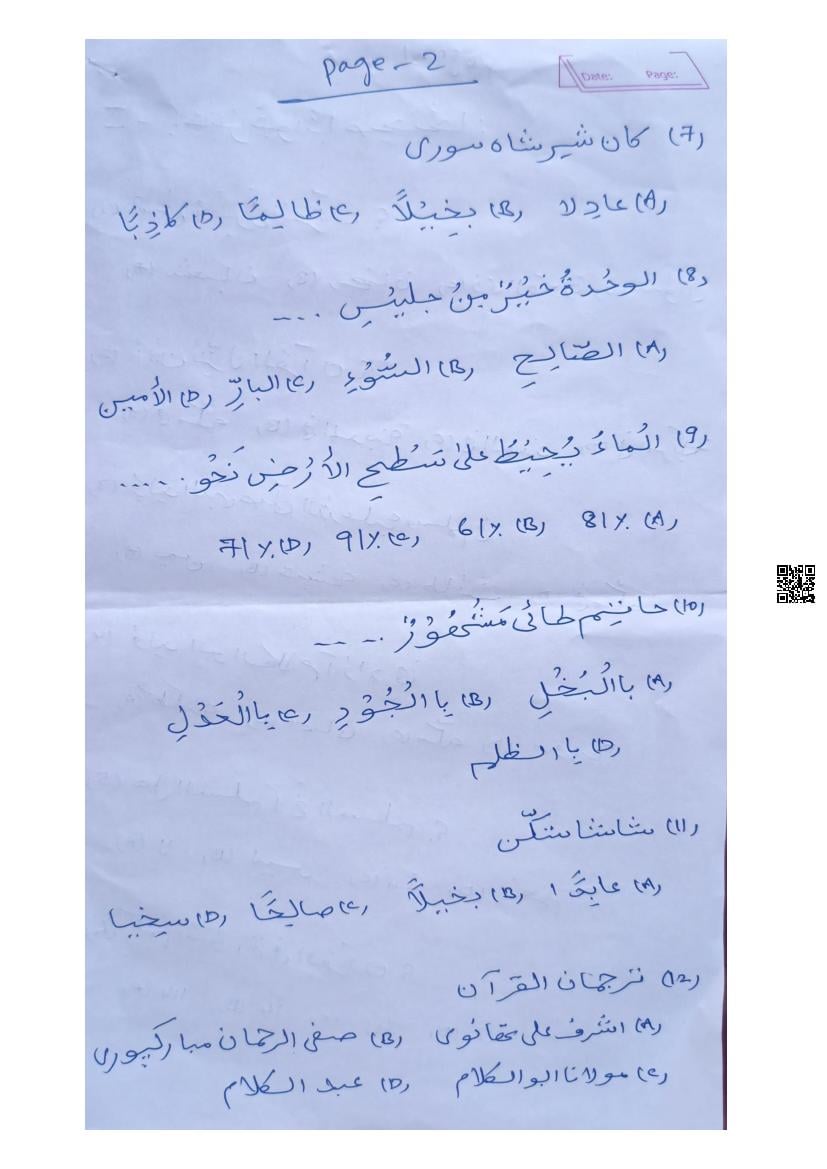 page - 2
Date: Page:
(7) كان شيرشاه سورى
(A) عادِلا (B) بخِيْلاً (C) ظالِمًا (D) كاذِبًا
(8) الوحْدةُ خَيْرٌ مِنْ جليْسِ ....
(A) الصّالِحِ (B) السُّوْءِ (C) البارِّ (D) الأمين
(9) الْماءُ يُحِيْطُ علىٰ سَطْحِ الأرْضِ نَحْو .....
(A) 81٪ (B) 61٪ (C) 91٪ (D) 71٪
(10) حاتِم طائى مَشْهُوْرٌ ....
(A) باالْبُخْلِ (B) باالْجُوْدِ (C) باالْعَدْلِ
(D) باالظلم
(11)
(A) (B) بخيلاً (C) صالِحًا (D) سخيا
(12) ترجمان القرآن
(A) اشرف على تھانوى (B) صفى الرحمان مباركپورى
(C) مولانا ابوالكلام (D) عبد الكلام